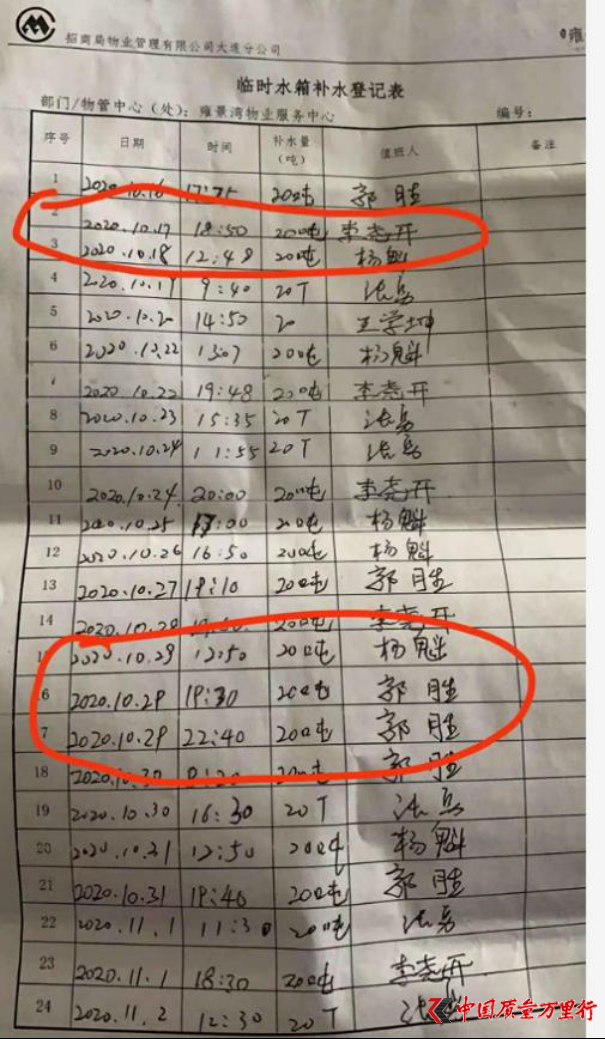 招商局物业管理有限公司大连分公司
雍
临时水箱补水登记表
部门/物管中心（处）：雍景湾物业服务中心 编号：
序号 日期 时间 补水量（吨） 值班人 备注
1 2020.10.16 20吨 郭胜
2 2020.10.17 18:50 20吨 李尧开
3 2020.10.18 12:48 20吨 杨魁
4 2020.10.19 9:40 20T
5 2020.10.20 14:50 20 王学坤
6 2020.10.22 13:07 20吨 杨魁
7 2020.10.22 19:48 20吨 李尧开
8 2020.10.23 15:35 20T
9 2020.10.24 11:55 20T
10 2020.10.24 20:00 20吨 李尧开
11 2020.10.25 20吨 杨魁
12 2020.10.26 16:50 20吨 杨魁
13 2020.10.27 19:10 20吨 郭胜
14 20吨 李尧开
15 2020.10.29 12:50 20吨 杨魁
6 2020.10.29 19:30 20吨 郭胜
7 2020.10.29 22:40 20吨 郭胜
18 2020.10.30 20吨 郭胜
19 2020.10.30 16:30 20T
20 2020.10.31 12:50 20吨 杨魁
21 2020.10.31 19:40 20吨 郭胜
22 2020.11.1 11:30 20吨
23 2020.11.1 18:30 20吨 李尧开
24 2020.11.2 12:30 20T
中国质量万里行